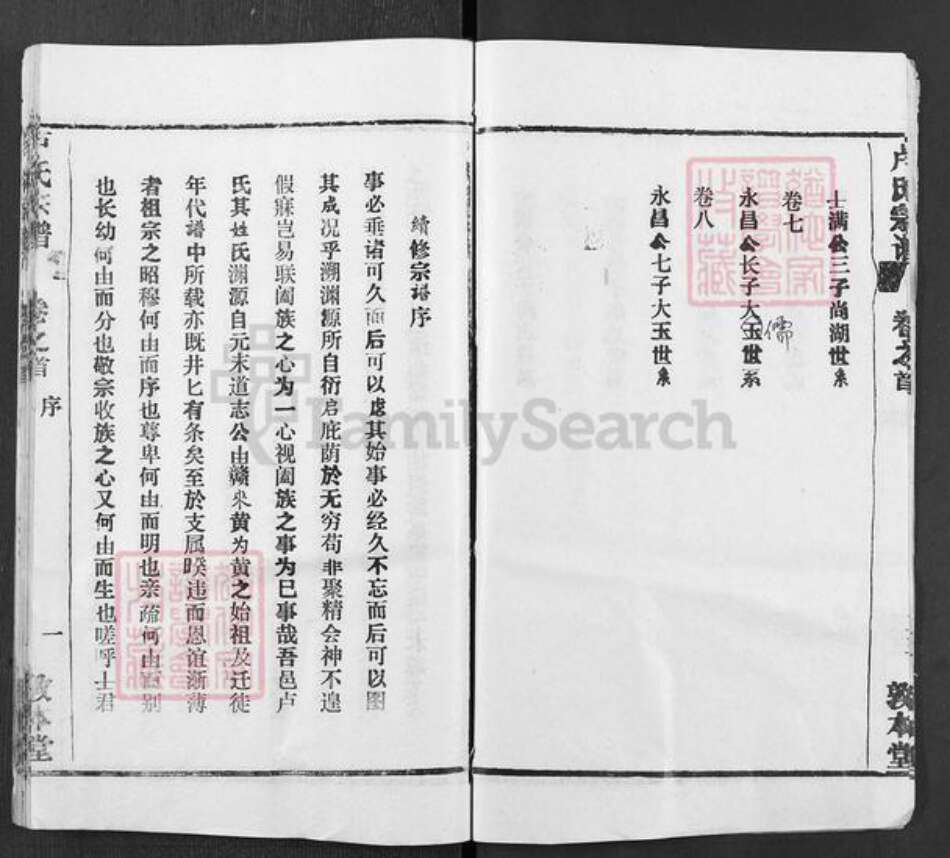 卢氏宗谱
卷之首
敦本堂
士满公三子尚湖世系
卷七
永昌公长子大玉世系
儒
卷八
永昌公七子大玉世系
續修宗谱序
事必垂诸可久而后可以虑其始事必经久不忘而后可以图
其成况乎溯渊源所自衍启庇荫於无穷苟非聚精会神不遑
假寐岂易联阖族之心为一心视阖族之事为巳事哉吾邑卢
氏其姓氏渊源自元末道志公由赣来黄为黄之始祖及迁徙
年代谱中所载亦既井匕有条矣至於支属暌违而恩谊渐薄
者祖宗之昭穆何由而序也尊卑何由而明也亲疏何由而别
也长幼何由而分也敬宗收族之心又何由而生也嗟呼士君
氏宗谱
卷之首
序
一
敦本堂
FamilySearch